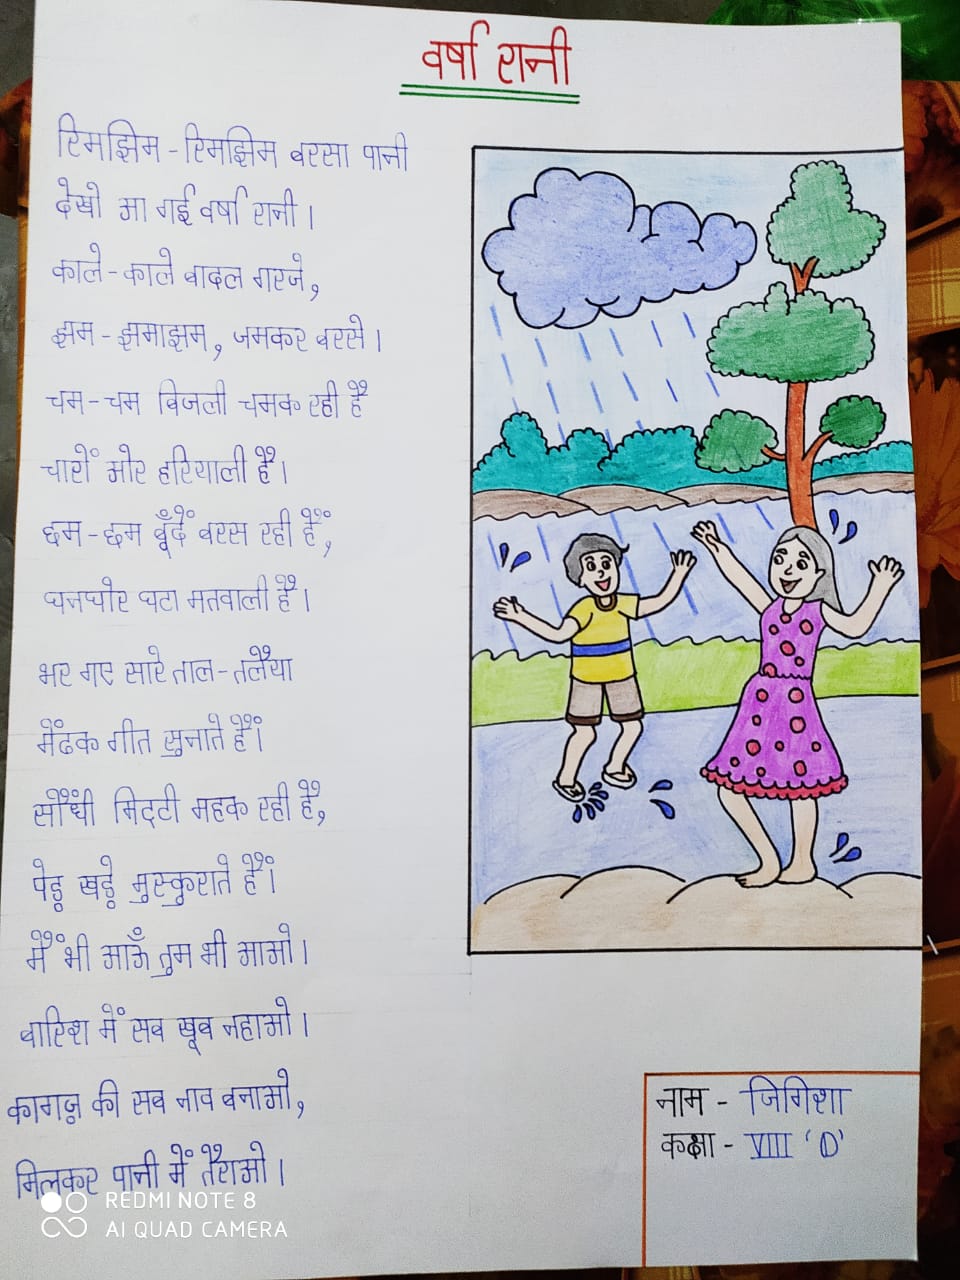 वर्षा रानी
रिमझिम-रिमझिम बरसा पानी
देखो आ गई वर्षा रानी।
काले-काले बादल गरजे,
झम-झमाझम, जमकर बरसे।
चम-चम बिजली चमक रही है
चारों ओर हरियाली है।
छम-छम बूँदें बरस रही हैं,
घनघोर घटा मतवाली है।
भर गए सारे ताल-तलैया
मेंढक गीत सुनाते हैं।
सौंधी मिट्टी महक रही है,
पेड़ खड़े मुस्कुराते हैं।
मैं भी आऊँ तुम भी आओ।
बारिश में सब खूब नहाओ।
कागज़ की सब नाव बनाओ,
मिलकर पानी में तैराओ।
नाम - जिगिशा
कक्षा - VIII 'D'
REDMI NOTE 8
AI QUAD CAMERA